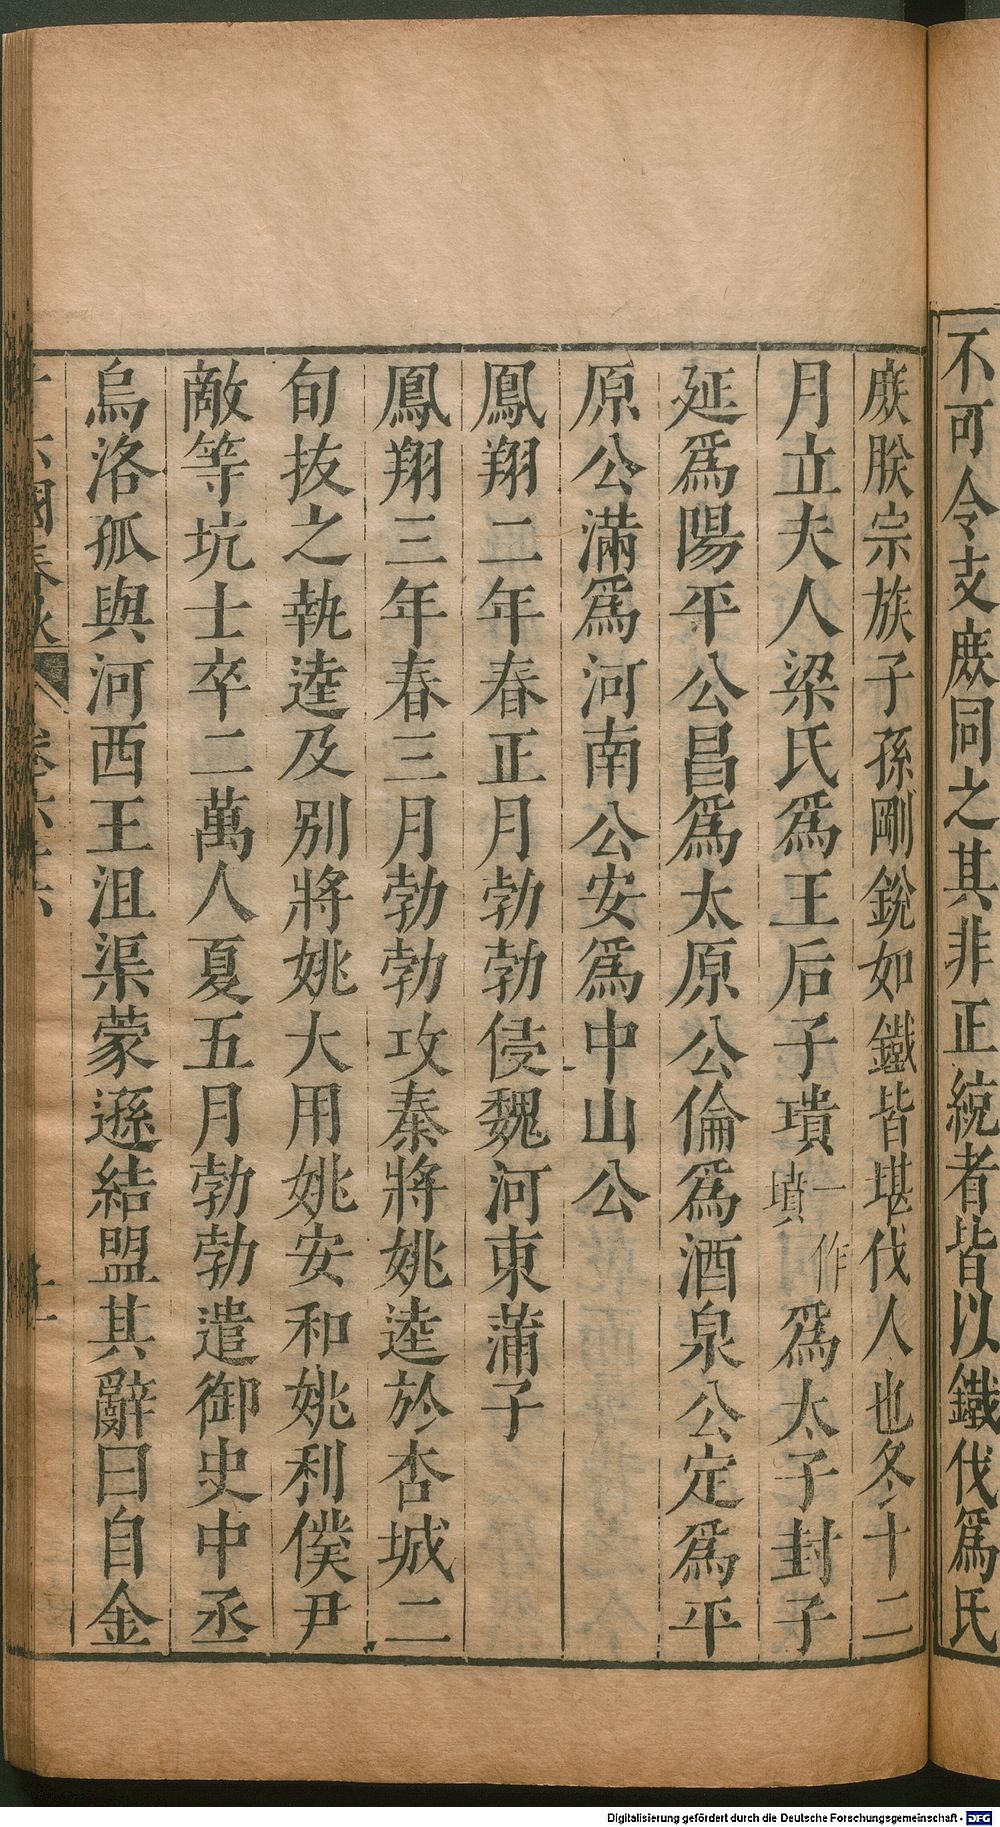 不可令支庶同之其非正統者皆以鐵伐爲氏
庶朕宗族子孫剛銳如鐵皆堪伐人也冬十二
月立夫人梁氏爲王后子璝一作墳爲太子封子
延爲陽平公昌爲太原公倫爲酒泉公定爲平
原公滿爲河南公安爲中山公
鳳翔二年春正月勃勃侵魏河東蒲子
鳳翔三年春三月勃勃攻秦將姚逵於杏城二
旬抜之執逵及别將姚大用姚安和姚利僕尹
敵等坑士卒二萬人夏五月勃勃遣御史中丞
烏洛孤與河西王沮渠蒙遜結盟其辭曰自金
十六國春秋 卷六十六 十一
Digitalisierung gefördert durch die Deutsche Forschungsgemeinschaft - DFG